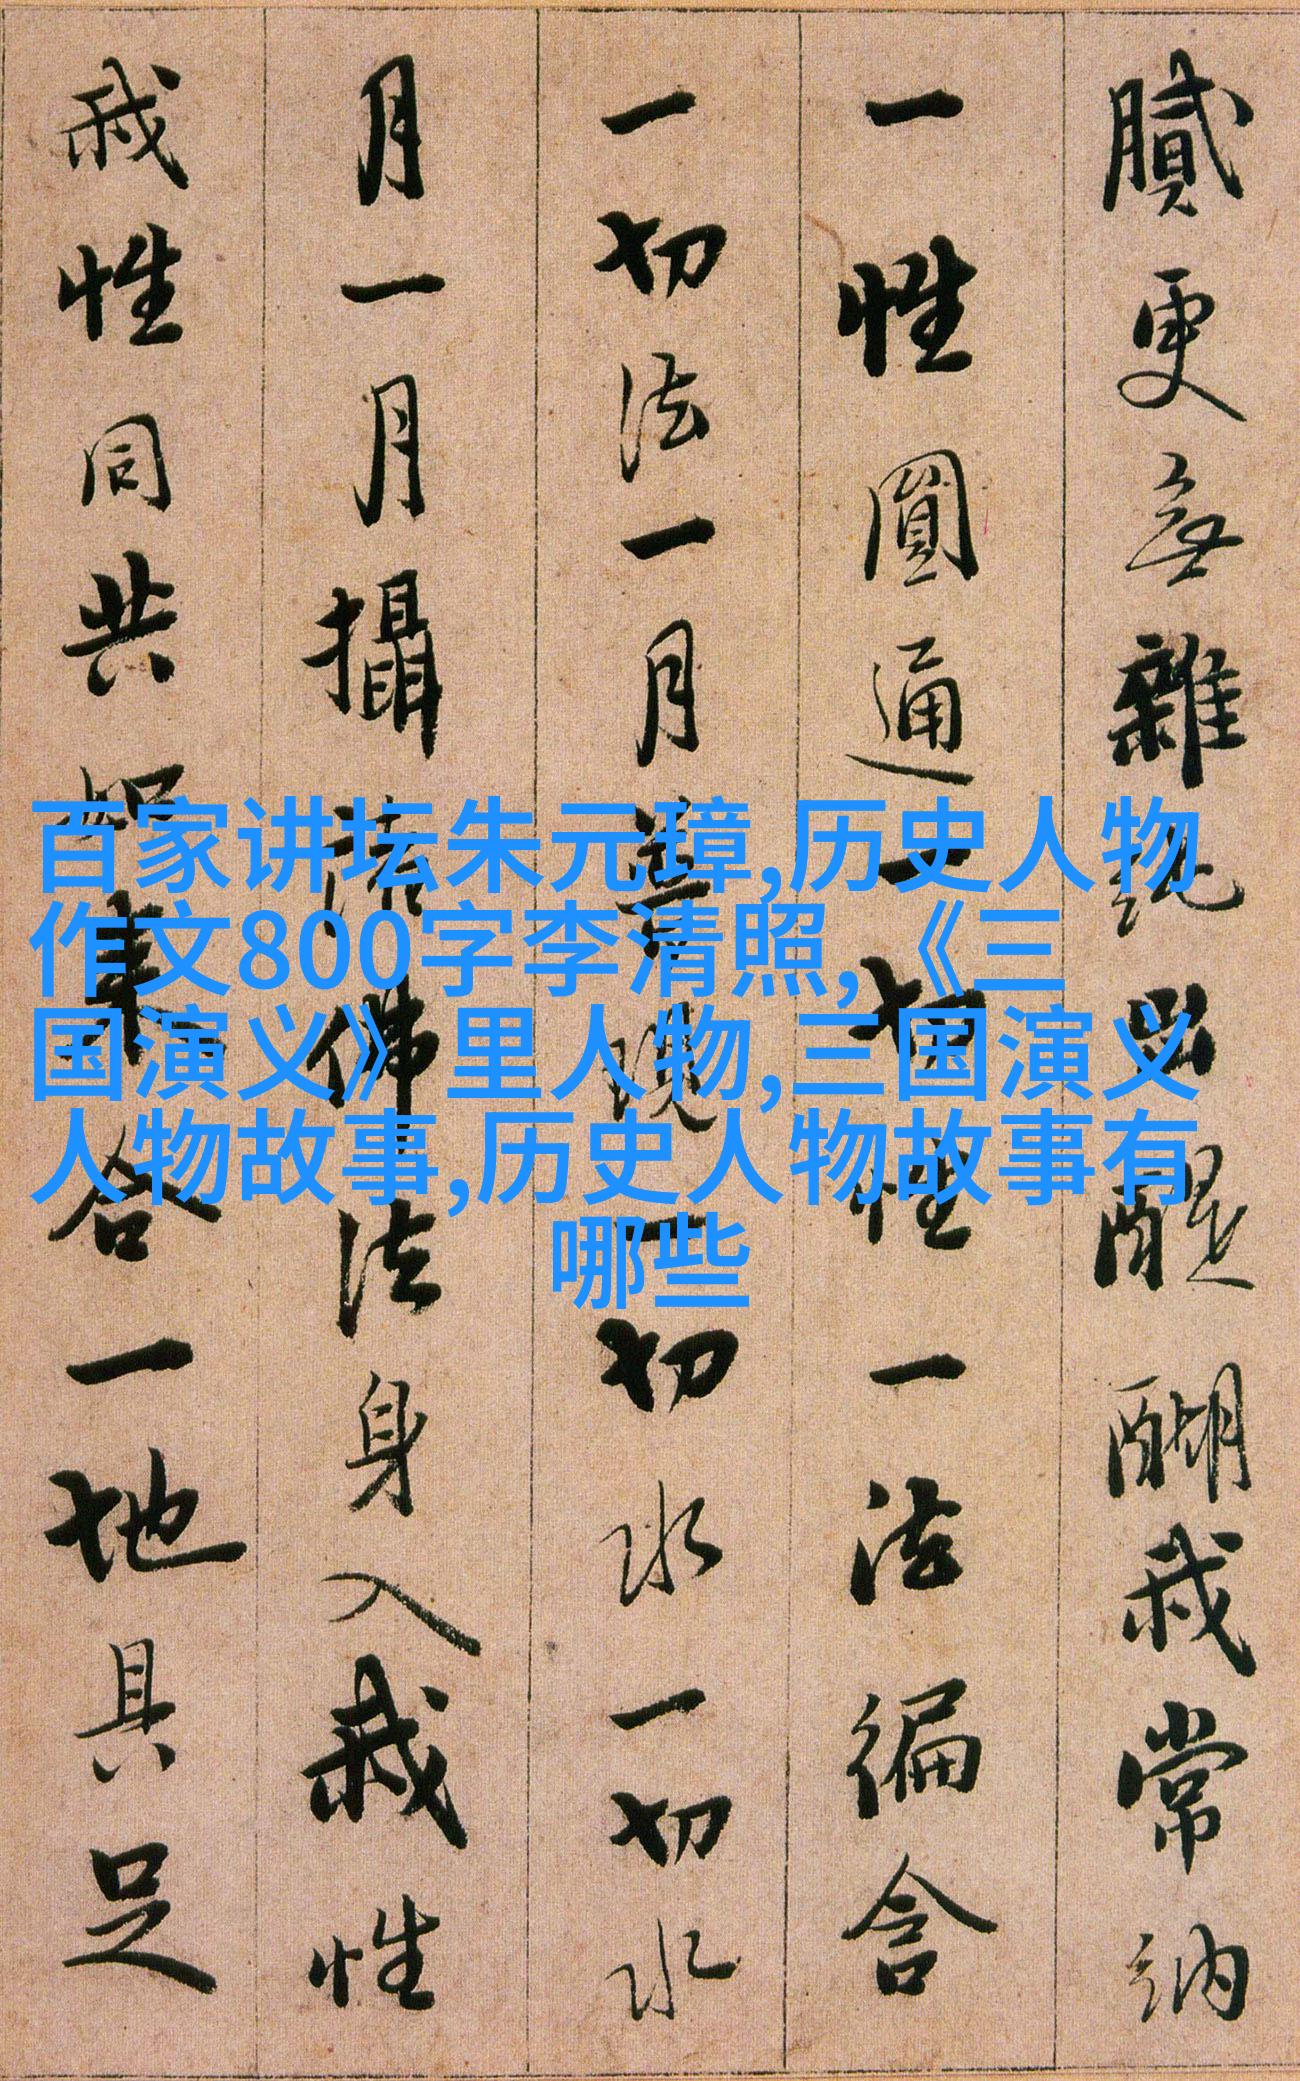 百家讲坛朱元璋,历史人物
作文800字李清照,《三
国演义》里人物,三国演义
人物故事,历史人物故事有
哪些
膩更無雜純出醍醐我常納
一性圓通一切性一法徧含
一切法一月普現一切水一切水
月一月攝諸佛法身入我性
我性同共如來合一地具足